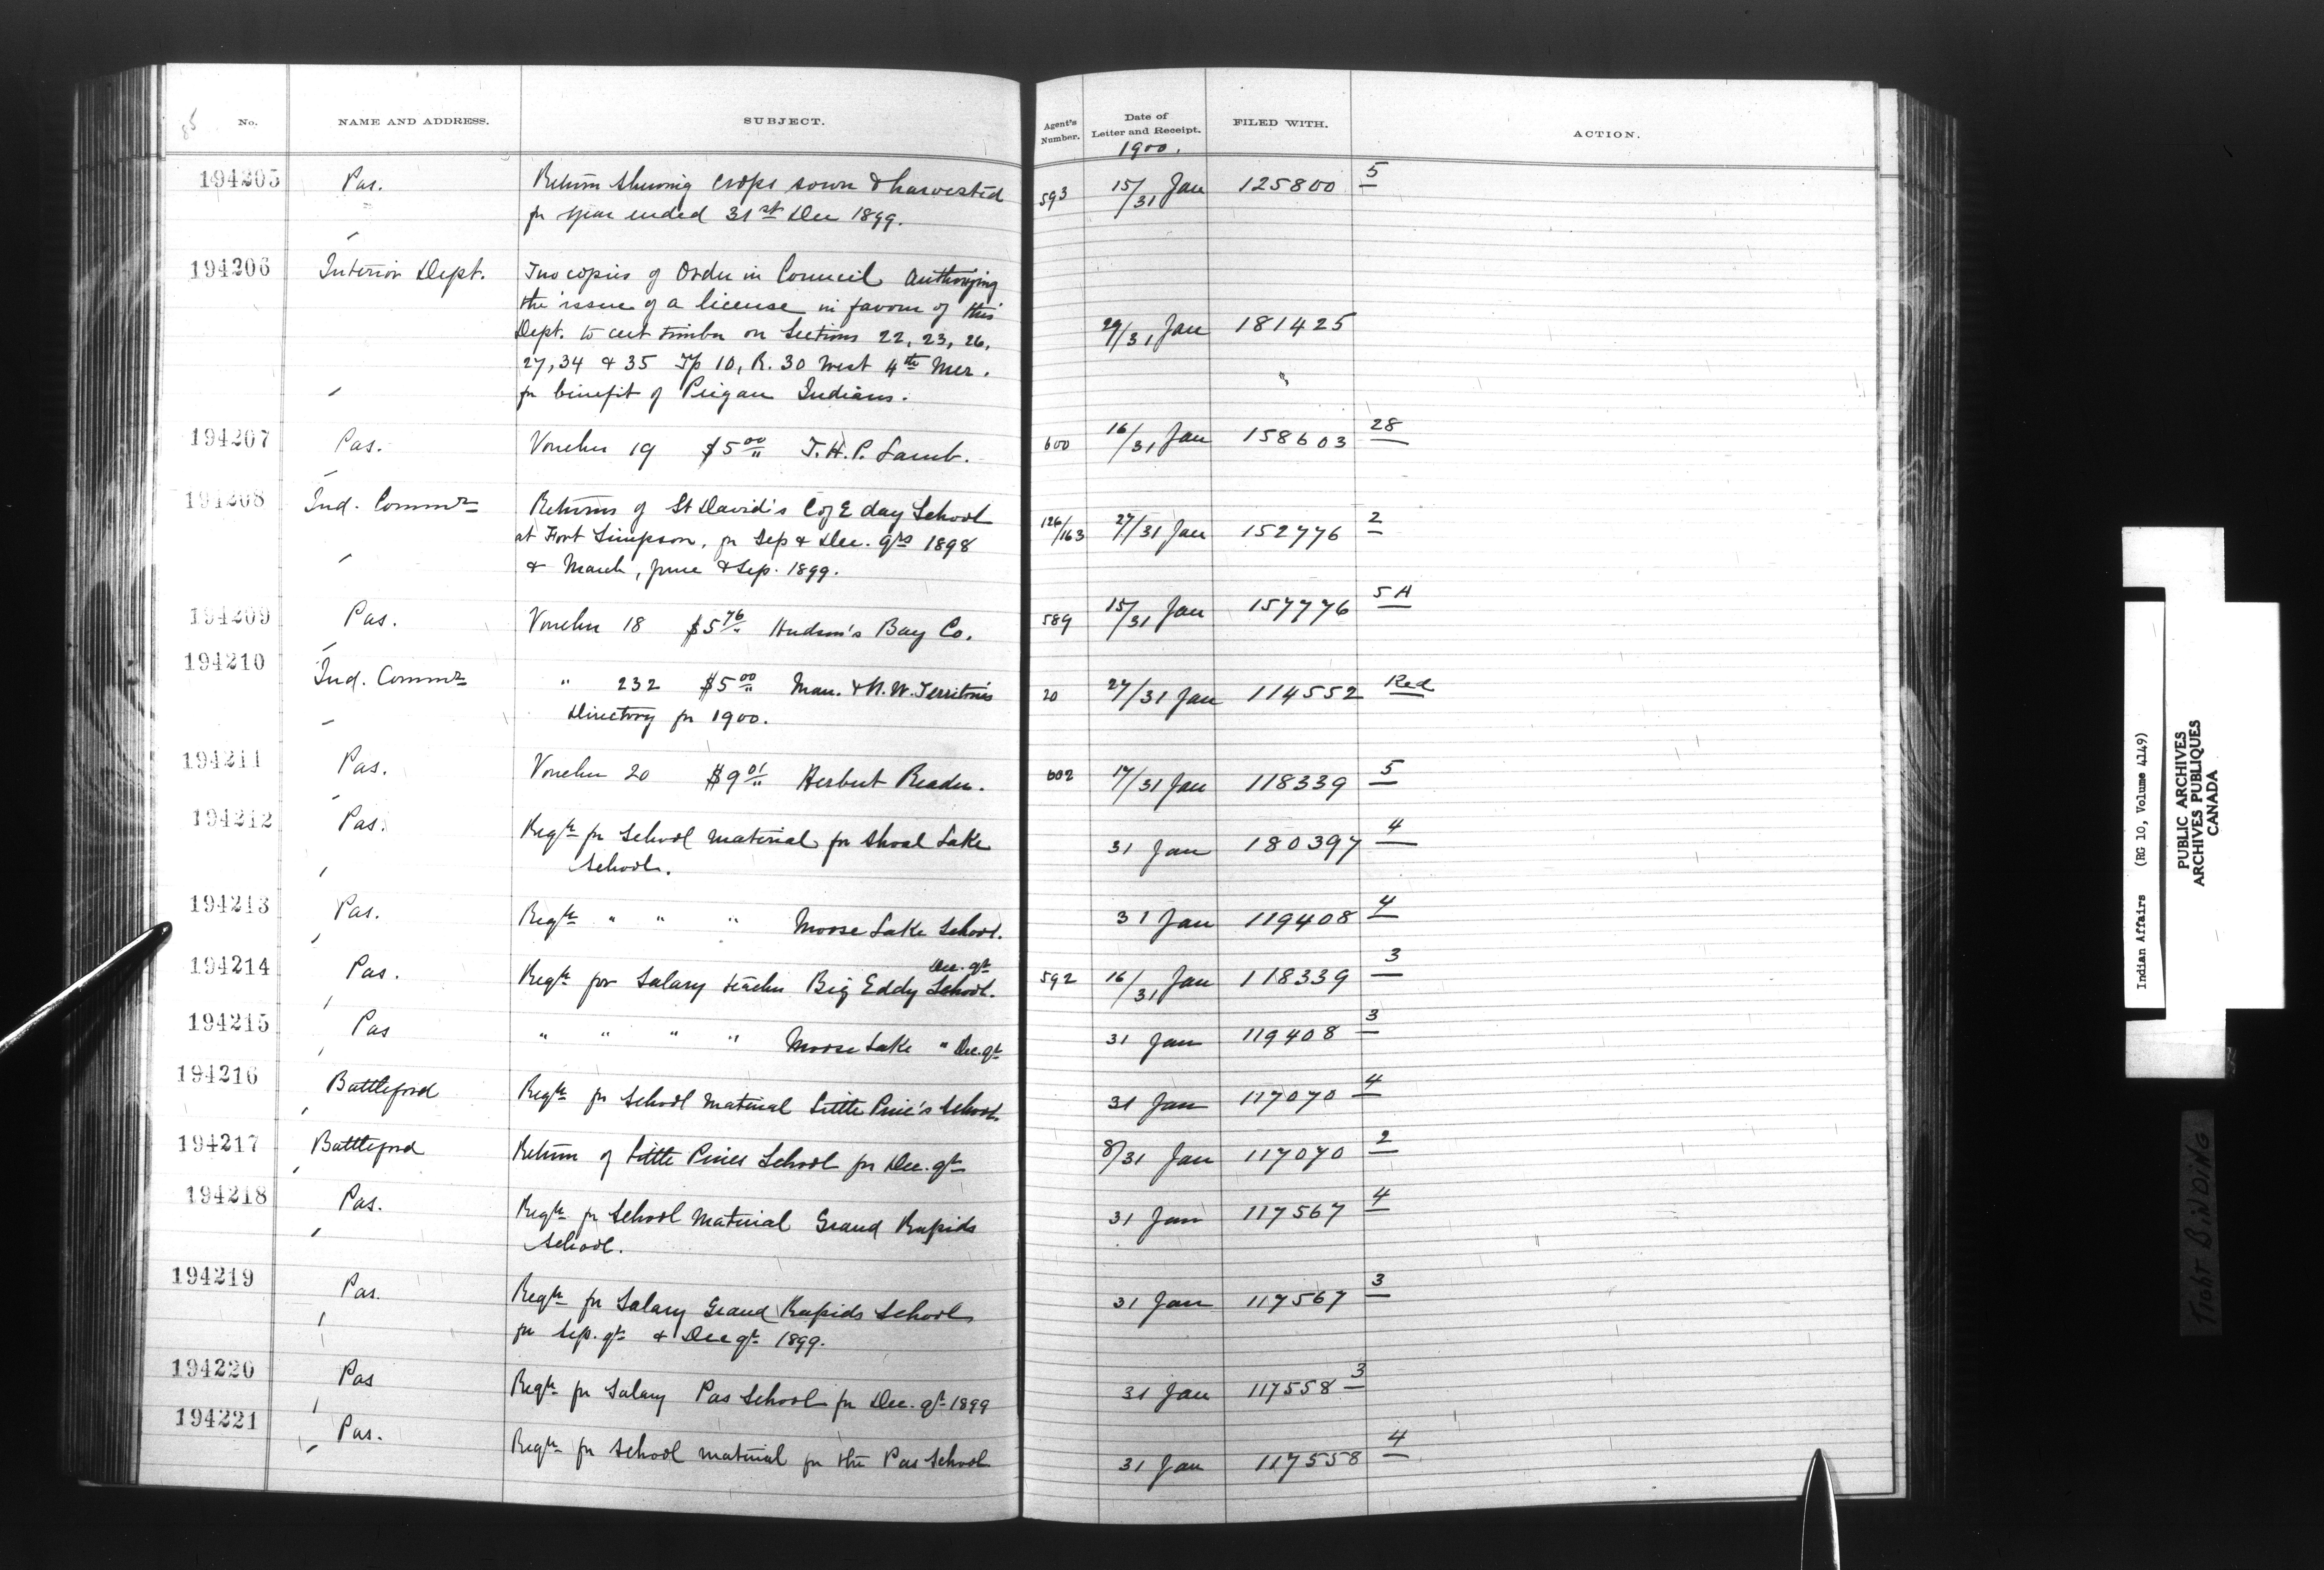 85 No. NAME AND ADDRESS. SUBJECT. Agent's Number. Date of Letter and Receipt. FILED WITH. ACTION.
1900.
194205 Pas. Return shewing crops sown & harvested 593 15/31 Jan 125800 5
for year ended 31st Dec 1899.
194206 Interior Dept. Two copies of Order in Council authorizing
the issue of a license in favour of this
Dept. to cut timber on Sections 22, 23, 26, 29/31 Jan 181425
27, 34 & 35 Tp 10, R. 30 West 4th Mer.
for benefit of Peigan Indians.
194207 Pas. Voucher 19 $5 00/" T. H. P. Lamb. 600 16/31 Jan 158603 28
194208 Ind. Commr Returns of St David's C of E day School 126/163 27/31 Jan 152776 2
at Fort Simpson, for Sep & Dec. qrs 1898
& March, June & Sep. 1899.
194209 Pas. Voucher 18 $5 76/" Hudson's Bay Co. 589 15/31 Jan 157776 5A
194210 Ind. Commr " 232 $5 00/" Man. & N. W. Territories 20 27/31 Jan 114552 Red
Directory for 1900.
194211 Pas. Voucher 20 $9 01/" Herbert Reader. 602 17/31 Jan 118339 5
194212 Pas. Reqn for School material for Shoal Lake 31 Jan 180397 4
School.
194213 Pas. Reqn " " " Moose Lake School. 31 Jan 119408 4
194214 Pas. Reqn for Salary teacher Big Eddy School. Dec. qr 592 16/31 Jan 118339 3
194215 Pas " " " " Moose Lake " Dec. qr 31 Jan 119408 3
194216 Battleford Reqn for School material Little Pine's School. 31 Jan 117070 4
194217 Battleford Return of Little Pines School for Dec. qr 8/31 Jan 117070 2
194218 Pas. Reqn for School Material Grand Rapids 31 Jan 117567 4
School.
194219 Pas. Reqn for Salary Grand Rapids School 31 Jan 117567 3
for Sep. qr & Dec qr 1899.
194220 Pas Reqn for Salary Pas School for Dec. qr 1899 31 Jan 117558 3
194221 Pas. Reqn for School material for the Pas School 31 Jan 117558 4
Indian Affairs (RG 10, Volume 4149)
PUBLIC ARCHIVES
ARCHIVES PUBLIQUES
CANADA
TIGHT BINDING